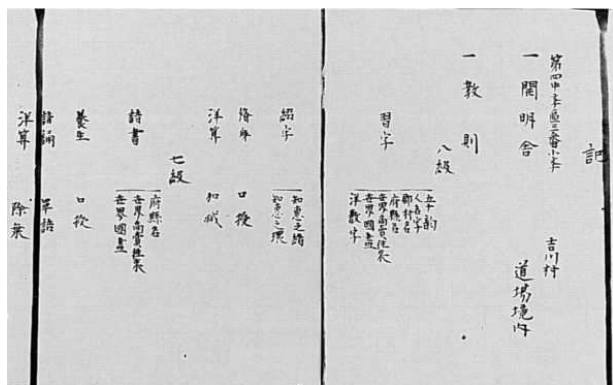 記
第四中学区三番小学
吉川村
一 開明舎
道場境内
一 教則
八級
習字
人名字
郡村名
府縣名
世界商賣往来
世界國盡
洋数字
綴字
知恵之緒
知恵之環
修身 口授
洋算 加減
七級
府縣名
世界商賣往来
世界國盡
養生 口授
諳誦 単語
洋算 除乗